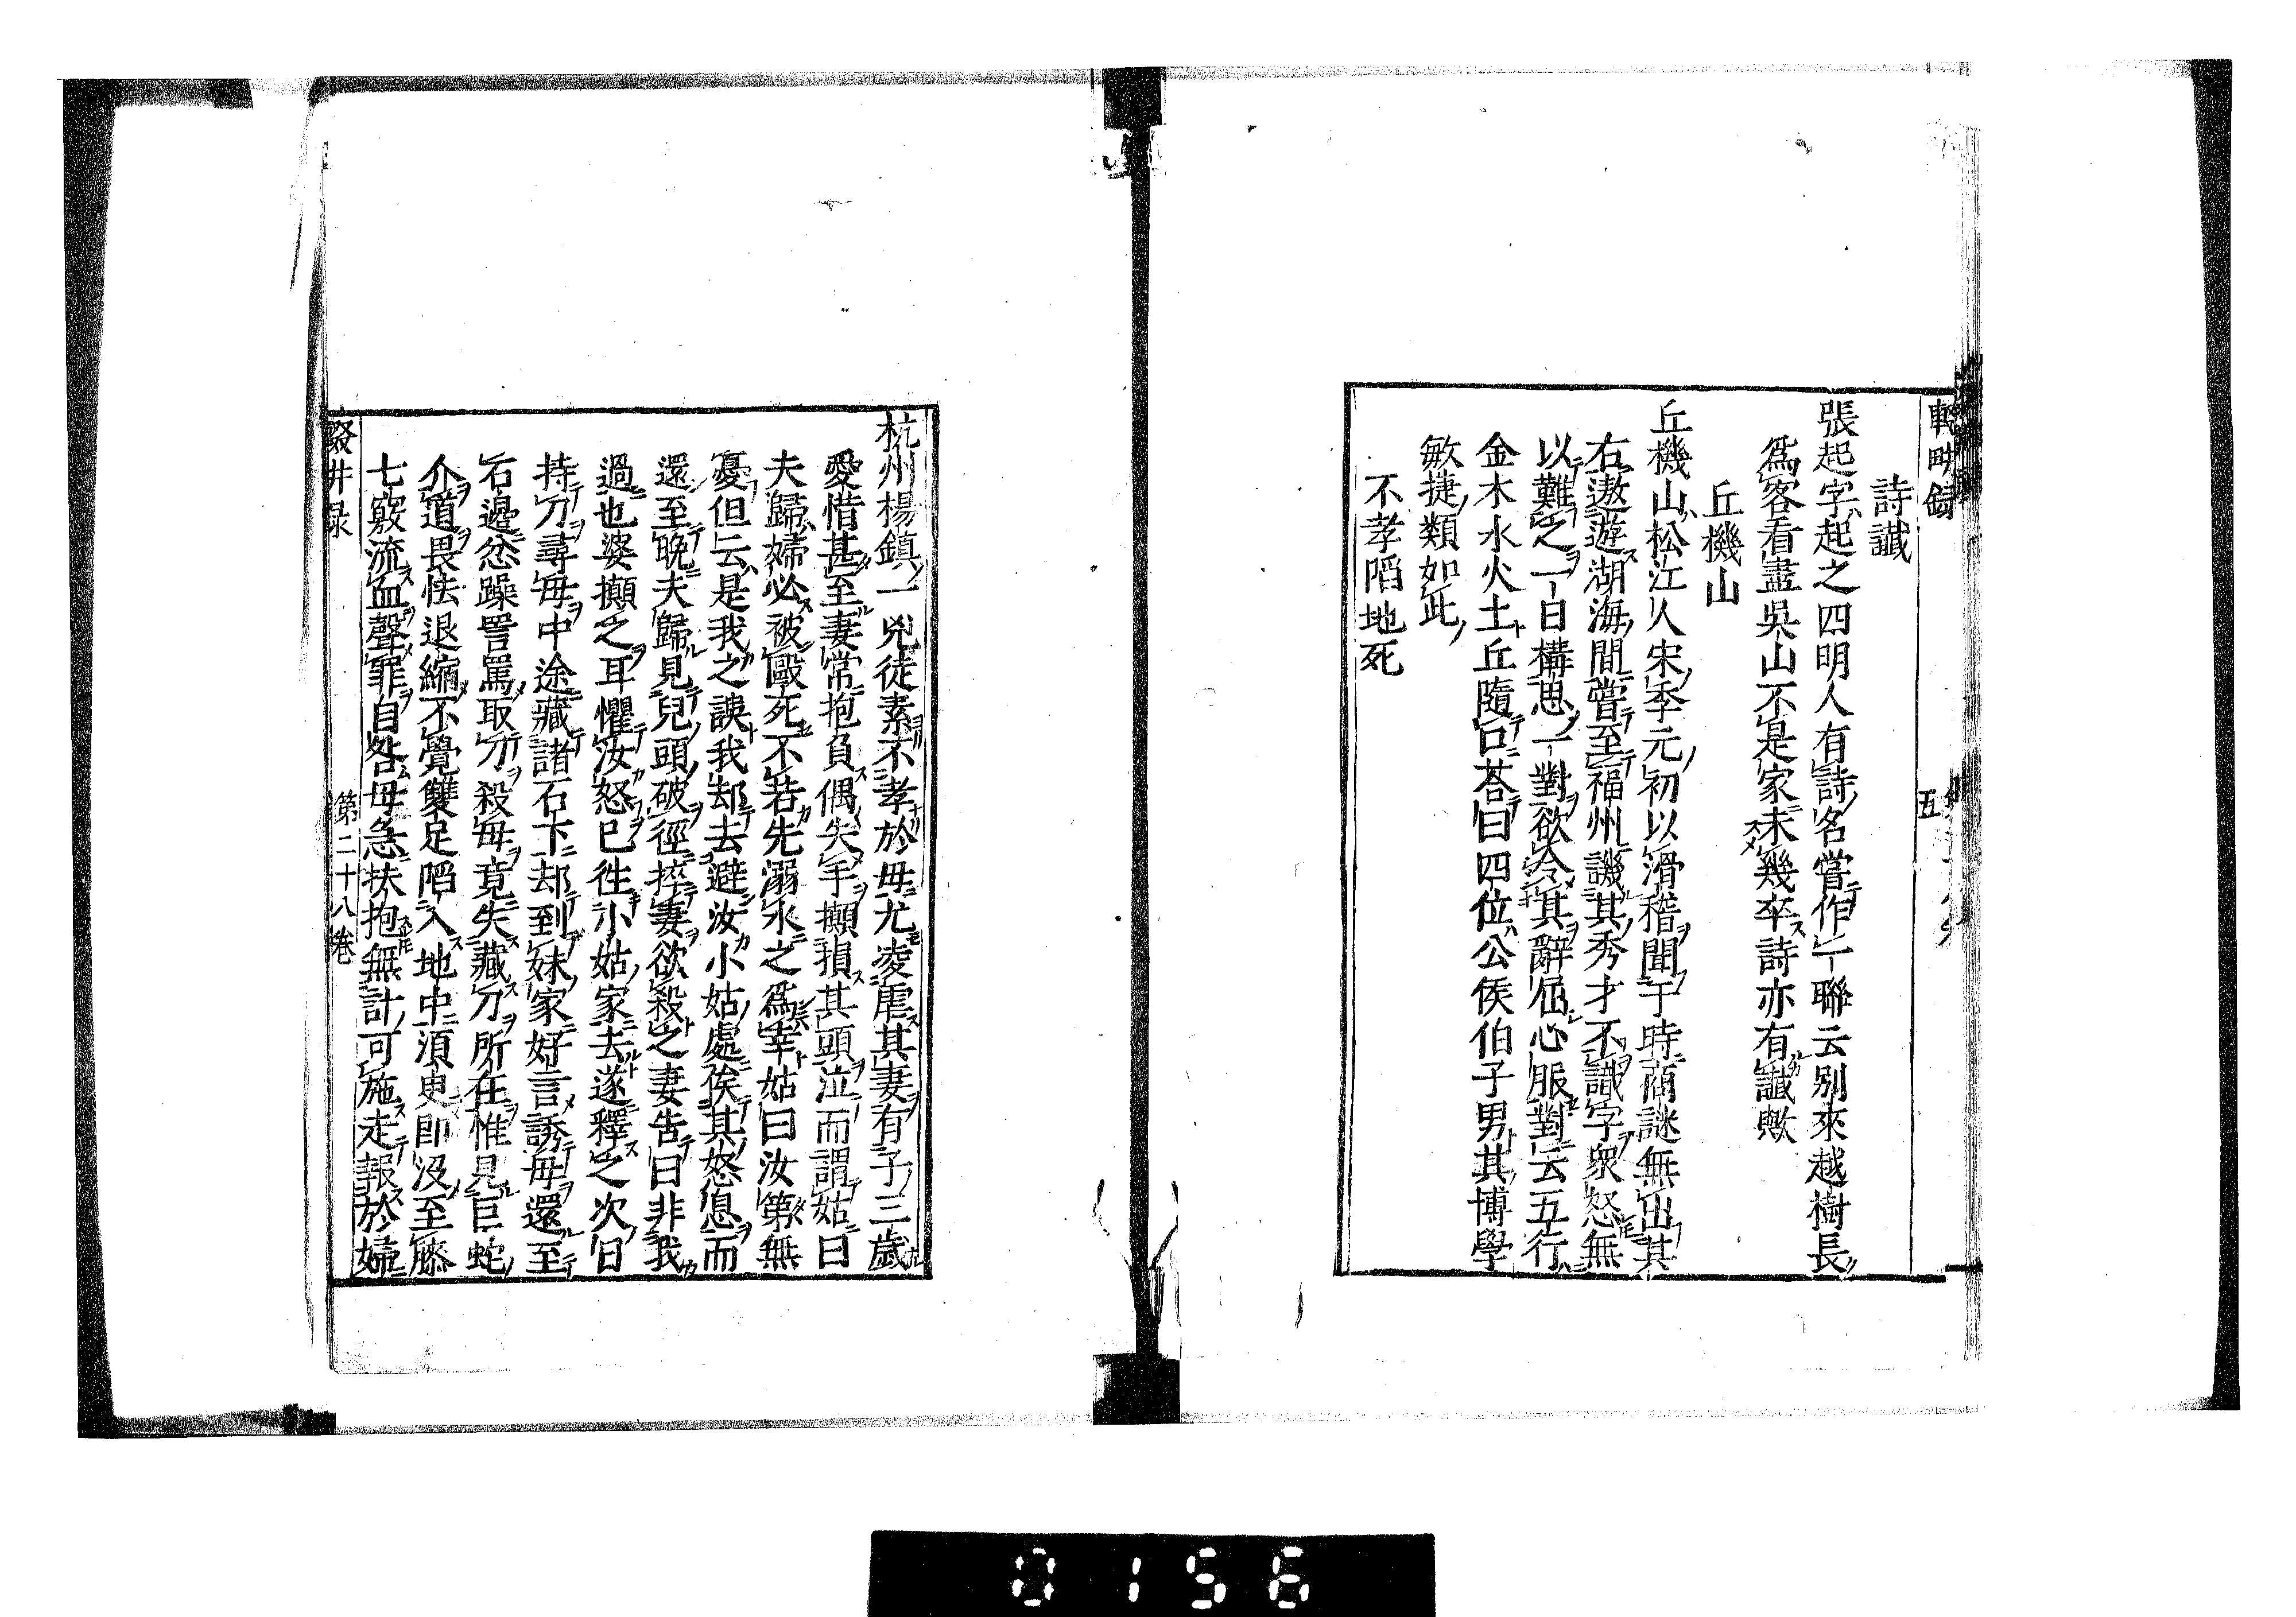 輟畊錄
五
詩讖
張起字起之四明人有詩名嘗作一聯云别來越樹長
爲客看盡吳山不是家未幾卒詩亦有讖歟
丘機山
丘機山松江人宋季元初以滑稽聞于時商謎無出其
右遨遊湖海間嘗至福州譏其秀才不識字衆怒無
以難之一日構思一對欲令其辭屈心服對云五行
金木水火土丘隨口荅曰四位公侯伯子男其博學
敏捷類如此
不孝陷地死
杭州楊鎮一兇徒素不孝於母尤凌虐其妻有子三歲
愛惜甚至妻常抱負偶失手攧損其頭泣而謂姑曰
夫歸婦必被毆死不若先溺水之爲幸姑曰汝第無
憂但云是我之誤我却去避汝小姑處俟其怒息而
還至晚夫歸見兒頭破徑捽妻欲殺之妻告曰非我
過也婆攧之耳懼汝怒已徃小姑家去遂釋之次日
持刀尋母中途藏諸石下却到妹家好言誘母還至
石邊忿躁詈罵取刀殺母竟失藏刀所在惟見巨蛇
介道畏怯退縮不覺雙足陷入地中須臾即没至膝
七竅流血聲罪自咎母急扶抱無計可施走報於婦
輟畊录
第二十八卷
0156